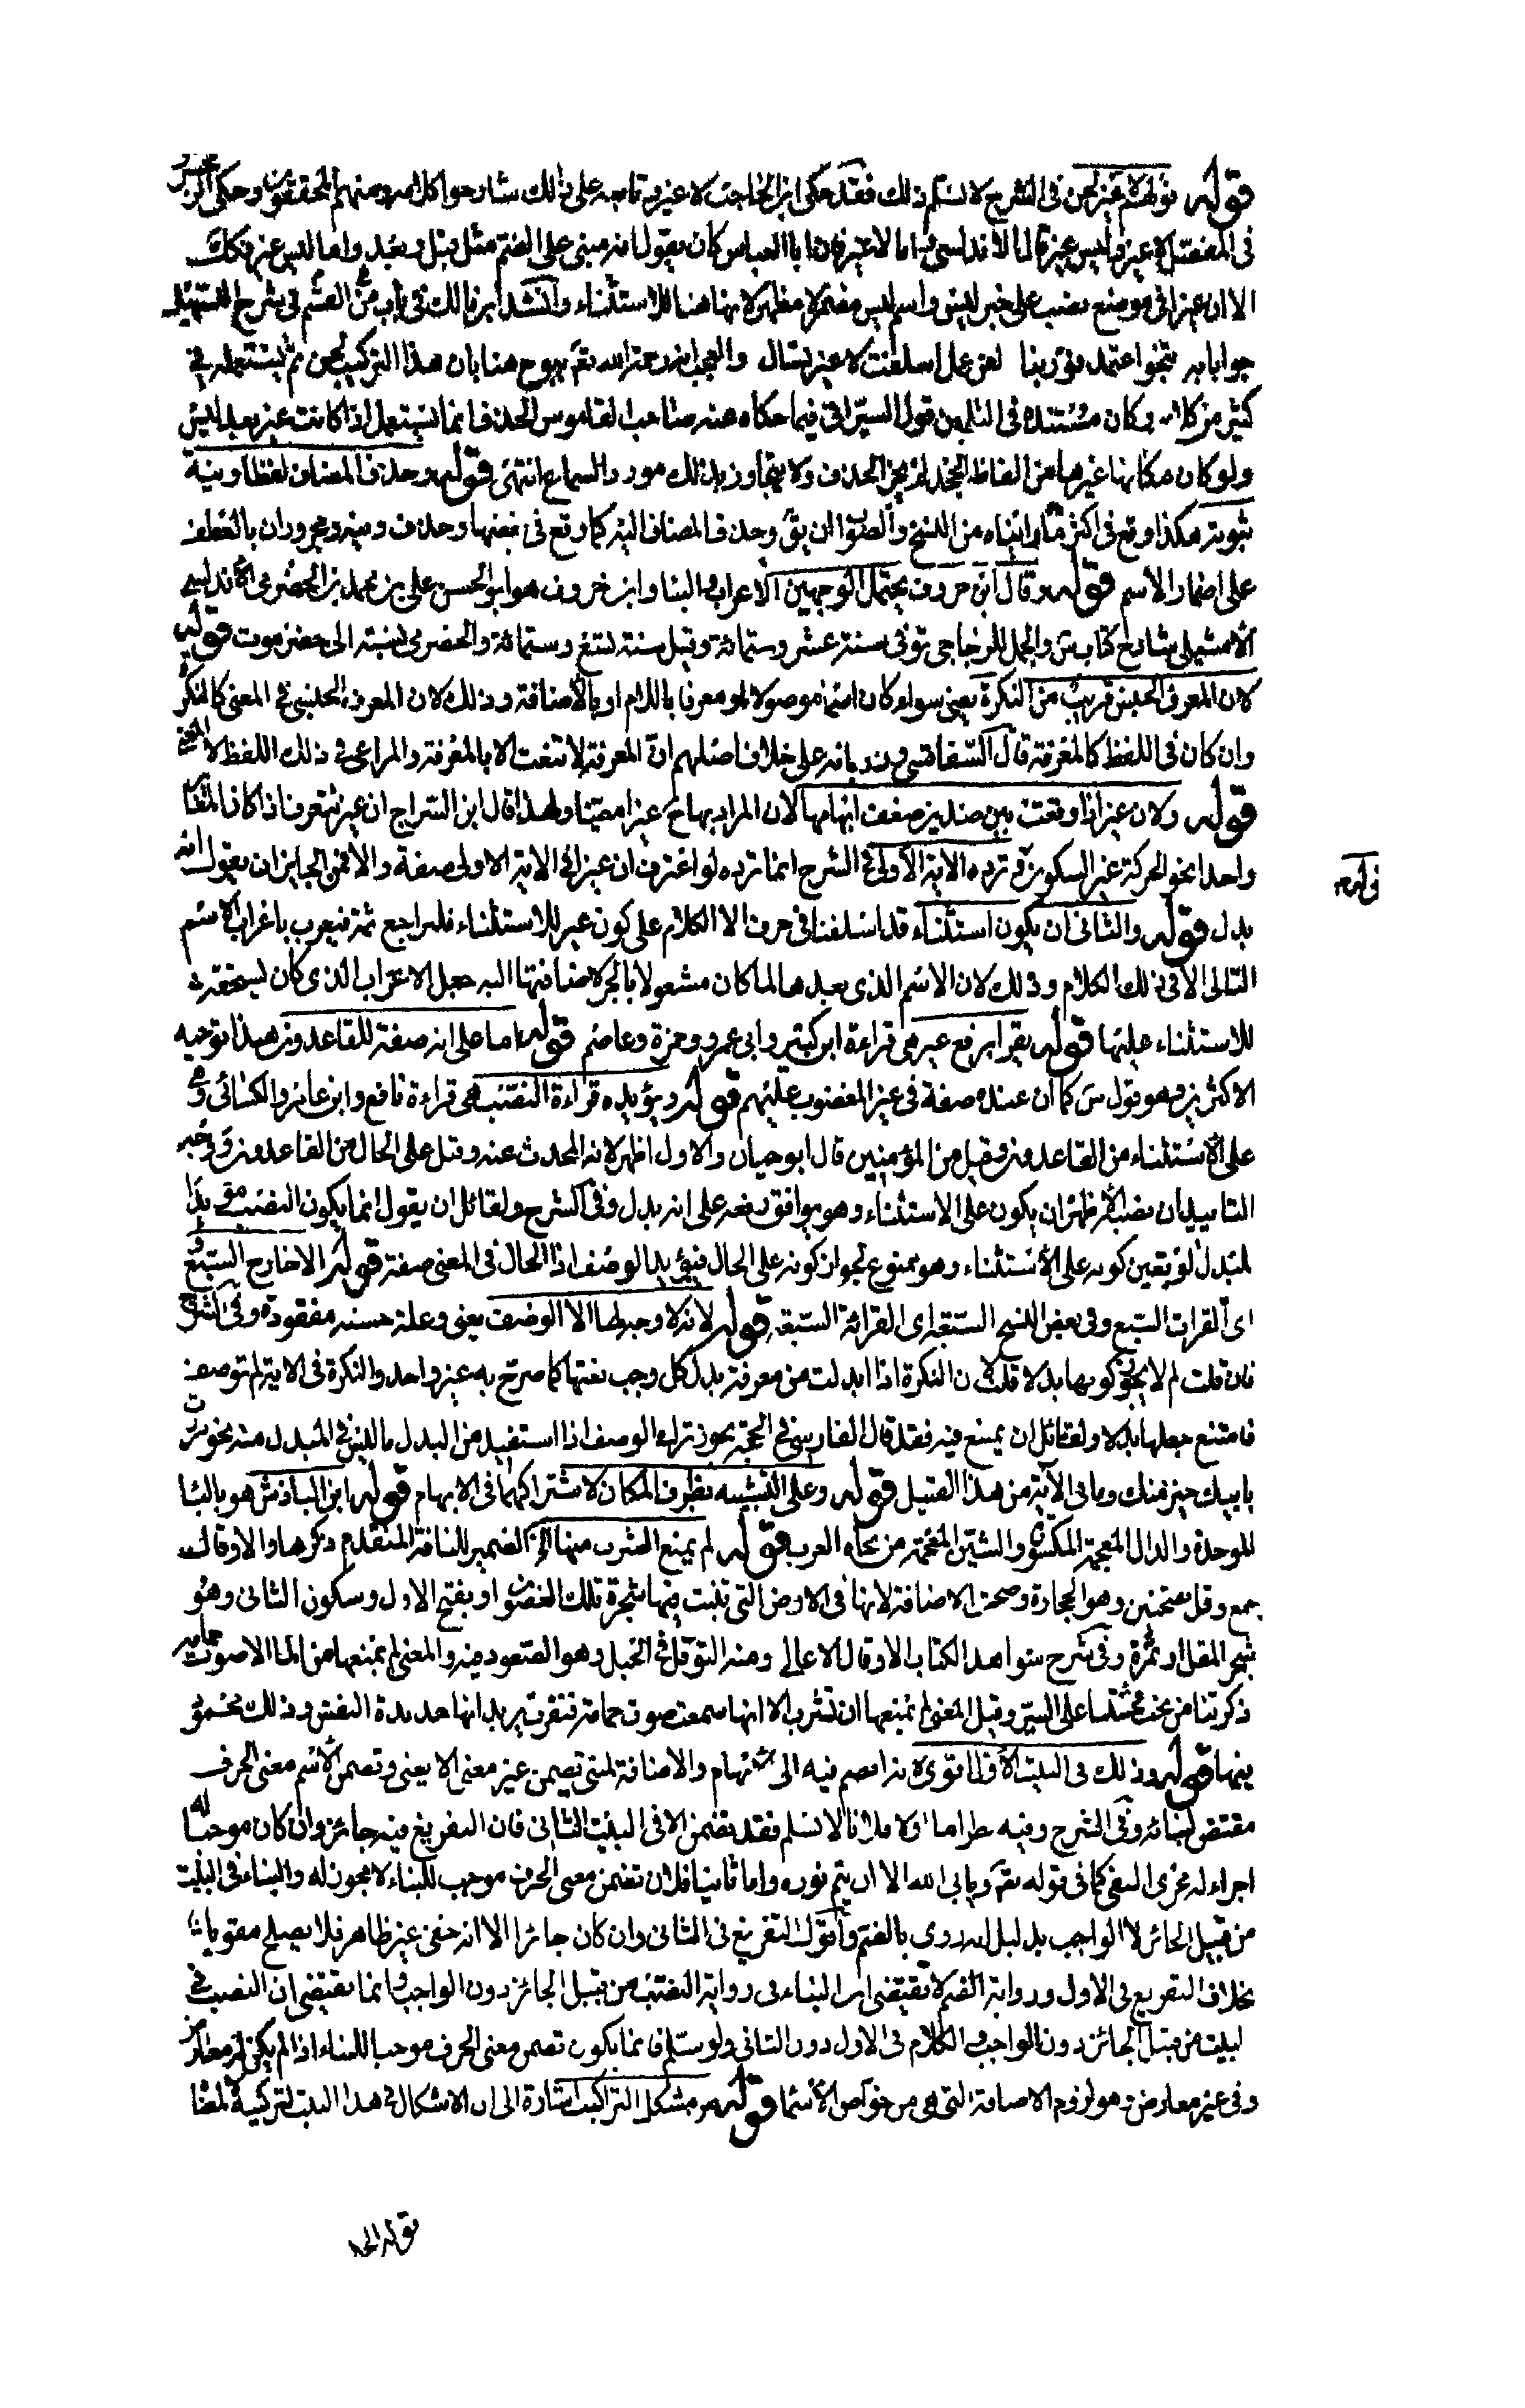 قوله قولهم لا غير لحن في الشرح لا نسلم ذلك فقد حكى ابن الحاجب لا غير وتابعه على ذلك شارحوا كلامه ومنهم المحققون وحكى
في المفصل لا غير وليس غير قال الأندلسي اما لا غير فان ابا العباس كان يقول انه مبني على الضم مثل قبل وبعد واما ليس غير فكذلك
الا ان غير في موضع نصب على خبر ليس واسم ليس مضمر لا يظهر لانها هنا للاستثناء وانشد ابن مالك في باب القسم في شرح التسهيل
جوابا به تنجو اعتمد فوربنا لعن عمل اسلفت لا غير تسال والعجب انه رحمه الله تعم يبوح هنا بان هذا التركيب لحن ثم يستعمله في
كثير من كلامه وكان مستنده في التلحين قول السيرافي فيما حكاه عنه صاحب القاموس الحذف انما يستعمل اذا كانت غير بعد ليس
ولو كان مكانها غيرها من الفاظ الجحد لم يجز الحذف ولا يتجاوز بذلك مورد السماع انتهى قوله وحذف المضاف لفظا ونية
ثبوته هكذا وقع في اكثر ما رايناه من النسخ والصواب ان يق وحذف المضاف اليه كما وقع في بعضها وحذف ونية مجروران بالعطف
على اضمار الاسم قوله وقال ابن خروف يحتمل الوجهين الاعراب والبنا وابن خروف هو ابو الحسن علي بن محمد بن الحضرمي الاندلسي
الاشبيلي شارح كتاب س والجمل للزجاجي توفي سنة عشر وستمائة وقيل سنة تسع وستمائة والحضرمي نسبته الى حضرموت قوله
لان المعرف الجنس قريب من النكرة يعني سواء كان اسما موصولا او معرفا باللام او بالاضافة وذلك لان المعرف الجنسي في المعنى كالنكرة
وان كان في اللفظ كالمعرفة قال السفاقسي ورد بانه على خلاف اصلهم ان المعرفة لا تنعت الا بالمعرفة والمراعى في ذلك اللفظ لا المعنى
قوله ولان غير اذا وقعت بين ضدين ضعف ابهامها لان المراد بها ح غيرا معينا ولهذا قال ابن السراج ان غير تتعرف اذا كان المغاير
واحدا نحو الحركة غير السكون قوله وترده الاية الاولى في الشرح انما ترده لو اعترف ان غير في الاية الاولى صفة والا فمن الجايز ان يقول انه
بدل قوله والثاني ان يكون استثناء قد اسلفنا في حرف الا الكلام على كون غير للاستثناء فليراجع ثمة فيعرب باعراب الاسم
التالي الا في ذلك الكلام وذلك لان الاسم الذي بعدها لما كان مشغولا بالجر لاضافتها اليه جعل الاعراب الذي كان يستحقه
للاستثناء عليها قوله يقرا برفع غير هي قراءة ابن كثير وابي عمرو وحمزة وعاصم قوله اما على انه صفة للقاعدون هذا توجيه
الاكثرين وهو قول س كما ان عنده صفة في غير المغضوب عليهم قوله ويؤيده قراءة النصب هي قراءة نافع وابن عامر والكسائي وهي
على الاستثناء من القاعدون وقيل من المؤمنين قال ابو حيان والاول اظهر لانه المحدث عنه وقيل على الحال من القاعدون ووجه
التاييد ان نصبه الاظهر ان يكون على الاستثناء وهو يوافق رفعه على انه بدل وفي الشرح ولقائل ان يقول انما يكون النصب مؤيدا
للبدل لو تعين كونه على الاستثناء وهو ممنوع لجواز كونه على الحال فيؤيد الوصف اذ الحال في المعنى صفة قوله الا خارج السبع
اي القرات السبع وفي بعض النسخ السبعة اي القرائة السبعة قوله لانه لا وجه لها الا الوصف يعني وعلة حسنه مفقودة وفي الشرح
فان قلت لم لا يجوز كونها بدلا قلت لان النكرة اذا ابدلت من معرفة بدل كل وجب نعتها كما صرح به غير واحد والنكرة في الاية لم توصف
فامتنع جعلها بدلا ولقائل ان يمنع فيه فقد قال الفارسي في الحجة يجوز ترك الوصف اذا استفيد من البدل ما ليس في المبدل منه نحو مررت
بابيك خير منك وما في الآية من هذا القبيل قوله وعلى التشبيه بظرف المكان لاشتراكهما في الابهام قوله ابن الباذش هو بالبا
الموحدة والذال المعجمة المكسورة والشين المعجمة من نحاة العرب قوله لم يمنع الشرب منها الخ الضمير للناقة المتقدم ذكرها والاوقال
جمع وقل بفتحتين وهو الحجارة وصحت الاضافة لانها في الارض التي تنبت فيها شجرة تلك الغصون او بفتح الاول وسكون الثاني وهو
شجر المقل او ثمرة وفي شرح شواهد الكتاب الاوقال الاعالي ومنه التوقل في الجبل وهو الصعود فيه والمعنى لم يمنعها من الما الا صوت حمامة
ذكرتنا من نحب فحثتنا على السير وقيل المعنى لم يمنعها ان تشرب الا انها سمعت صوت حمامة فنفرت يريد انها حديدة النفس وذلك محمود
فيها قوله وذلك في البيت الاول اقوى لانه انضم فيه الى الابهام والاضافة لمبني تضمن غير معنى الا يعني وتضمن الاسم معنى الحرف
مقتض لبنائه وفي الشرح وفيه نظر اما اولا فلانا لا نسلم فقد تضمن الا في البيت الثاني فان التفريغ فيه جائز وان كان موجبا له
اجراء له مجرى النفي كما في قوله تعم ويابى الله الا ان يتم نوره واما ثانيا فلان تضمن معنى الحرف موجب للبناء لا مجوز له والبناء في البيت
من قبيل الجائز لا الواجب بدليل انه روى بالضم واقول التفريغ في الثاني وان كان جائزا الا انه خفي غير ظاهر فلا يصلح مقويا
بخلاف التفريغ في الاول ورواية الضم لا تقتضي ان البناء في رواية النصب من قبيل الجائز دون الواجب وانما تقتضي ان النصب في
البيت من قبيل الجائز دون الواجب والكلام في الاول دون الثاني ولو سلم فانما يكون تضمن معنى الحرف موجبا للبناء اذا لم يكن له معارض
وفي غير معارض وهو لزوم الاضافة التي هي من خواص الاسما قوله من مشكل التراكيب اشارة الى ان الاشكال في هذا البيت لتركيبه